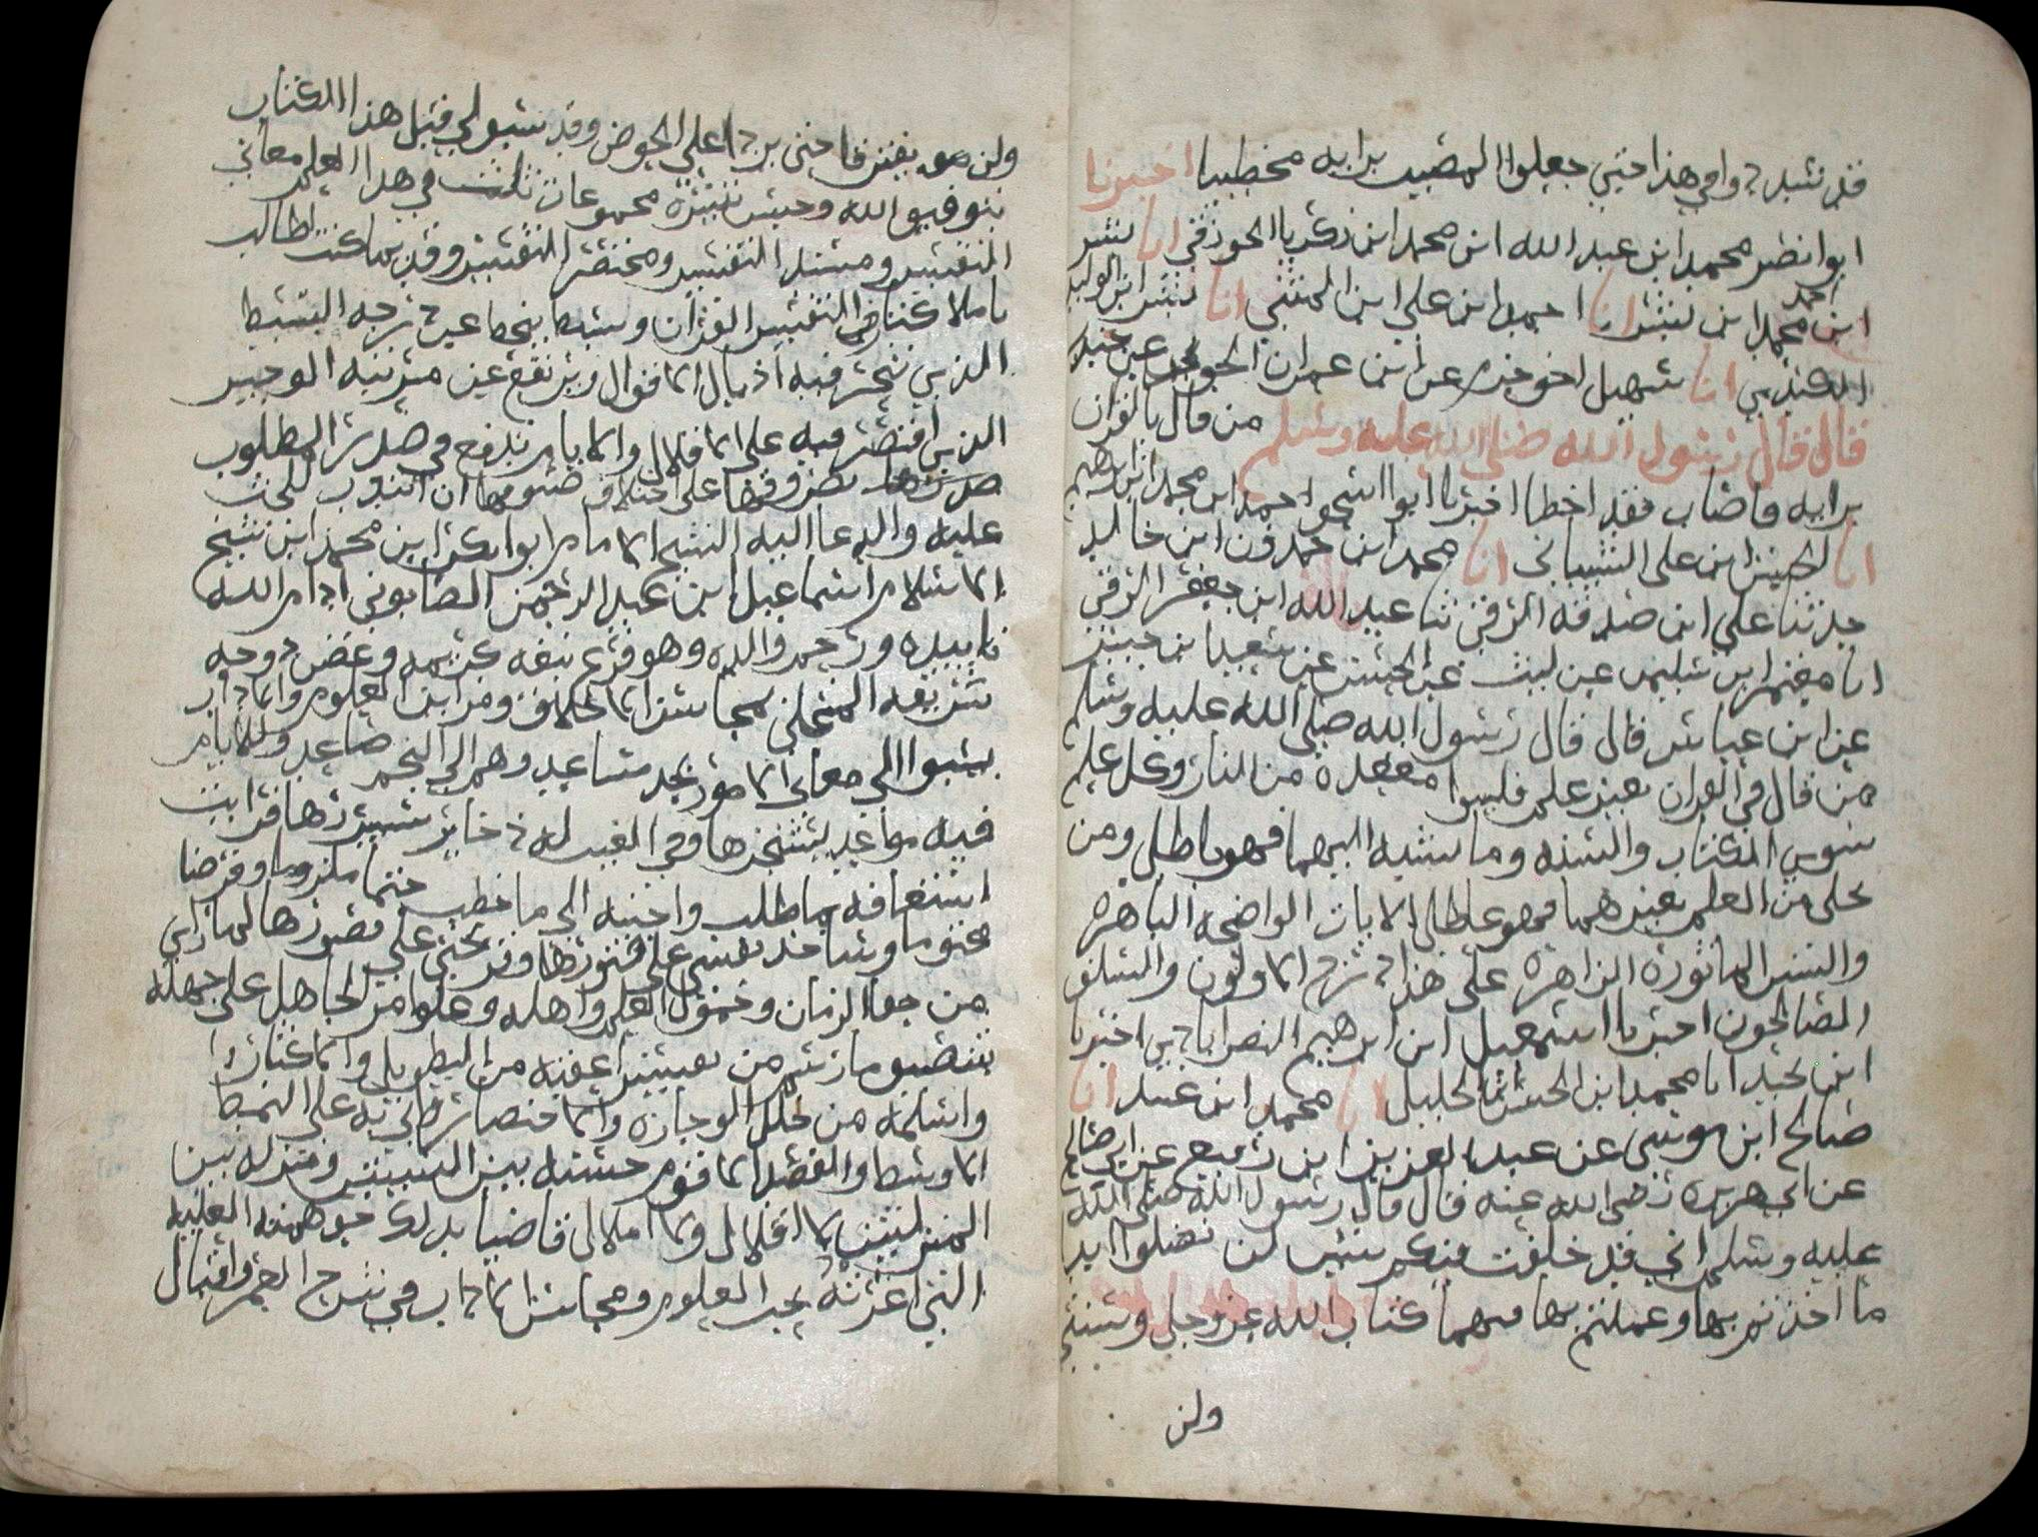 قد تشددوا في هذا حتى جعلوا المصيب برايه مخطيا اخبرنا
ابوا نصر محمد ابن عبد الله ابن محمد ابن زكريا الجوزقي انا بشر
ابن احمد محمد ابن بشر انا احمد ابن علي ابن المثنى انا بشر ابن الوليد
الكندي انا سهيل اخو حزم عن ابن عمران الجوني عن جندب
قال قال رسول الله صلى الله عليه وسلم من قال بالقران
برايه فاصاب فقد اخطا اخبرنا ابوا اسحق احمد ابن محمد ابن ابرهيم
انا الحسين ابن على الشيباني انا محمد ابن حمدون ابن خالد
حدثنا علي ابن صدقه الرقي ثنا عبد الله ابن جعفر الرقي
انا معتمر ابن سليمن عن ليث عن الحسن عن سعيد ابن جبير
عن ابن عباس قال قال رسول الله صلى الله عليه وسلم
من قال في القران بغير علم فليتبوا مقعده من النار وكل علم
سوى الكتاب والسنه وما يستند اليهما فهو باطل ومن
تحلى من العلم بغيرهما فهو عاطل الايات الواضحه الباهره
والسنن الماثوره الزاهره على هذا درج الاولون والسلف
الصالحون اخبرنا اسمعيل ابن ابرهيم النصراباذي اخبرنا
ابن نجيد انا محمد ابن الحسن الخليل انا محمد ابن عبيد انا
صالح ابن موسى عن عبد العزيز ابن رفيع عن ابي صالح
عن ابي هريره رضي الله عنه قال قال رسول الله صلى الله
عليه وسلم اني قد خلفت فيكم شيئين لن تضلوا ابدا
ما اخذتم بهما وعملتم بهما فيهما كتاب الله عز وجل وسنتي
ولن
ولن يفترقا حتى يردا على الحوض وقد سبق لي قبل هذا الكتاب
بتوفيق الله وحسن تيسيره مجموعات ثلث في هذا العلم معاني
التفسير ومسند التفسير ومختصر التفسير وقديما كنت اطالب
باملا كتاب في التفسير القران وسيط ينحط عن درجه البسيط
الذي تجر فيه اذيال الاقوال ويرتفع عن مرتبه الوجيز
الذي اقتصر فيه على الاقلال والايام تدفع في صدر المطلوب
بصروفها على اختلاف صنوفها ان انتدب للحث
عليه والدعا اليه الشيخ الامام ابوا بكر ابن محمد ابن شيخ
الاسلام اسماعيل ابن عبد الرحمن الصابوني ادام الله
تاييده ورحم والده وهو فرع نبعه كريمه وغصن دوحه
شريفه المتحلي بمحاسن الاخلاق ومزاين العلوم والاداب
يسبوا الى معالي الامور بجد مساعد وهم الى النجم صاعد وللايام
فيه مواعيد يستنجزها وفي الغيب له ذخاير سيبرزها فرايت
اسعافه بما طلب واجبته الى ما خطب حتما ملزوما وفرضا
محتوما وساعد نفسي على فتورها وقريحتي على قصورها لما ارى
من جفا الزمان وخمول العلم واهله وعلوا مر الجاهل على جهله
بتصنيف ما رسم من تفسير اعفيه من التطويل والاكثار
واسلمه من خلل الوجازه والاختصار واتي به على النمط
الاوسط والقصد الاقوم حسنه بين السيئتين ومنزله بين
المنزلتين لا اقلال ولا املال قاضيا بذلك حق همته العليه
التي اغرته بحب العلوم ومحاسن الاداب وفي شرح العمر واقبال